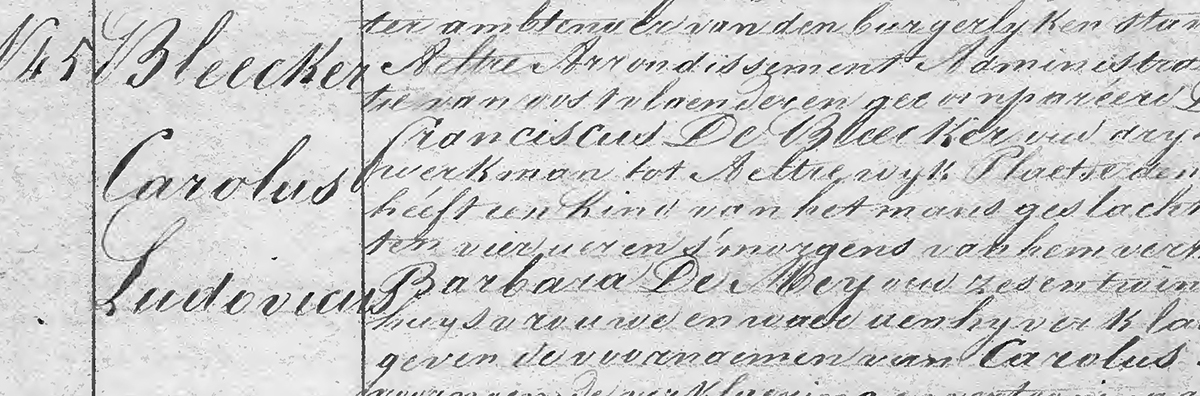 N 45
Bleecker
Carolus
Ludovicus
ter ambtenaer van den burgerlyken sta
Aeltre Arrondissement Administra
tie van oostvlaenderen gecompareerd
Franciscus De Bleecker oud dry
werkman tot Aeltre wyk Plaetse den
heeft een kind van het mans geslacht
ten vier ueren s'morgens van hem verk
Barbara De Mey oud zesentwin
huysvrouwe en waer aen hy verkla
geven de voornaemen van Carolus